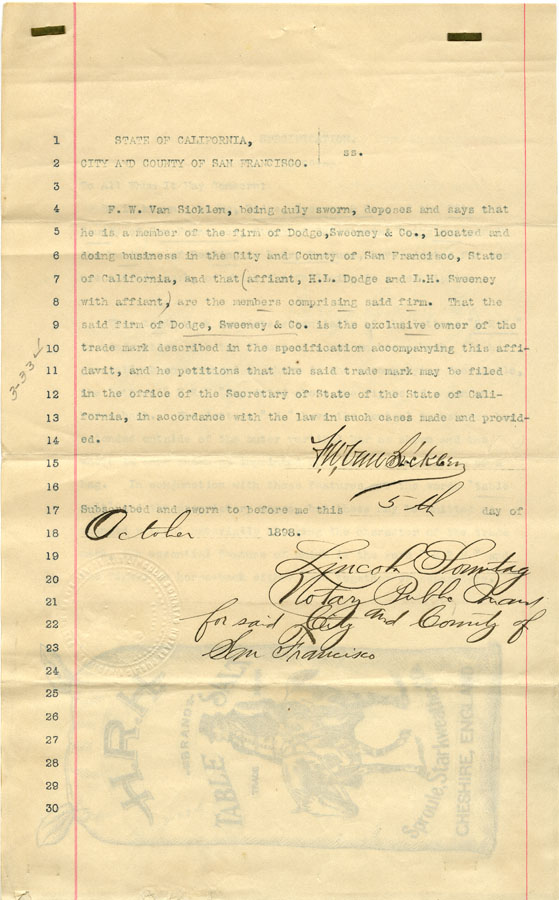 1 STATE OF CALIFORNIA,
ss.
2 CITY AND COUNTY OF SAN FRANCISCO.
3 To All Whom It May Concern:
4 F. W. Van Sicklen, being duly sworn, deposes and says that
5 he is a member of the firm of Dodge,Sweeney & Co., located and
6 doing business in the City and County of San Francisco, State
7 of California, and that (affiant, H.L. Dodge and L.H. Sweeney
8 with affiant,) are the members comprising said firm. That the
9 said firm of Dodge, Sweeney & Co. is the exclusive owner of the
10 trade mark described in the specification accompanying this affi-
11 davit, and he petitions that the said trade mark may be filed
12 in the office of the Secretary of State of the State of Cali-
13 fornia, in accordance with the law in such cases made and provid-
14 ed.
3-33
15 F W Van Sicklen
16
17 Subscribed and sworn to before me this 5th day of
18 October 1898.
19 Lincoln Sonntag
20
21 Notary Public
22 for said City and County of
23 San Francisco
24
25
26
27
28
29
30
H.R.H.
BRAND
TABLE SALT
TRADE
Sproule, Starkweather
CHESHIRE, ENGLAND